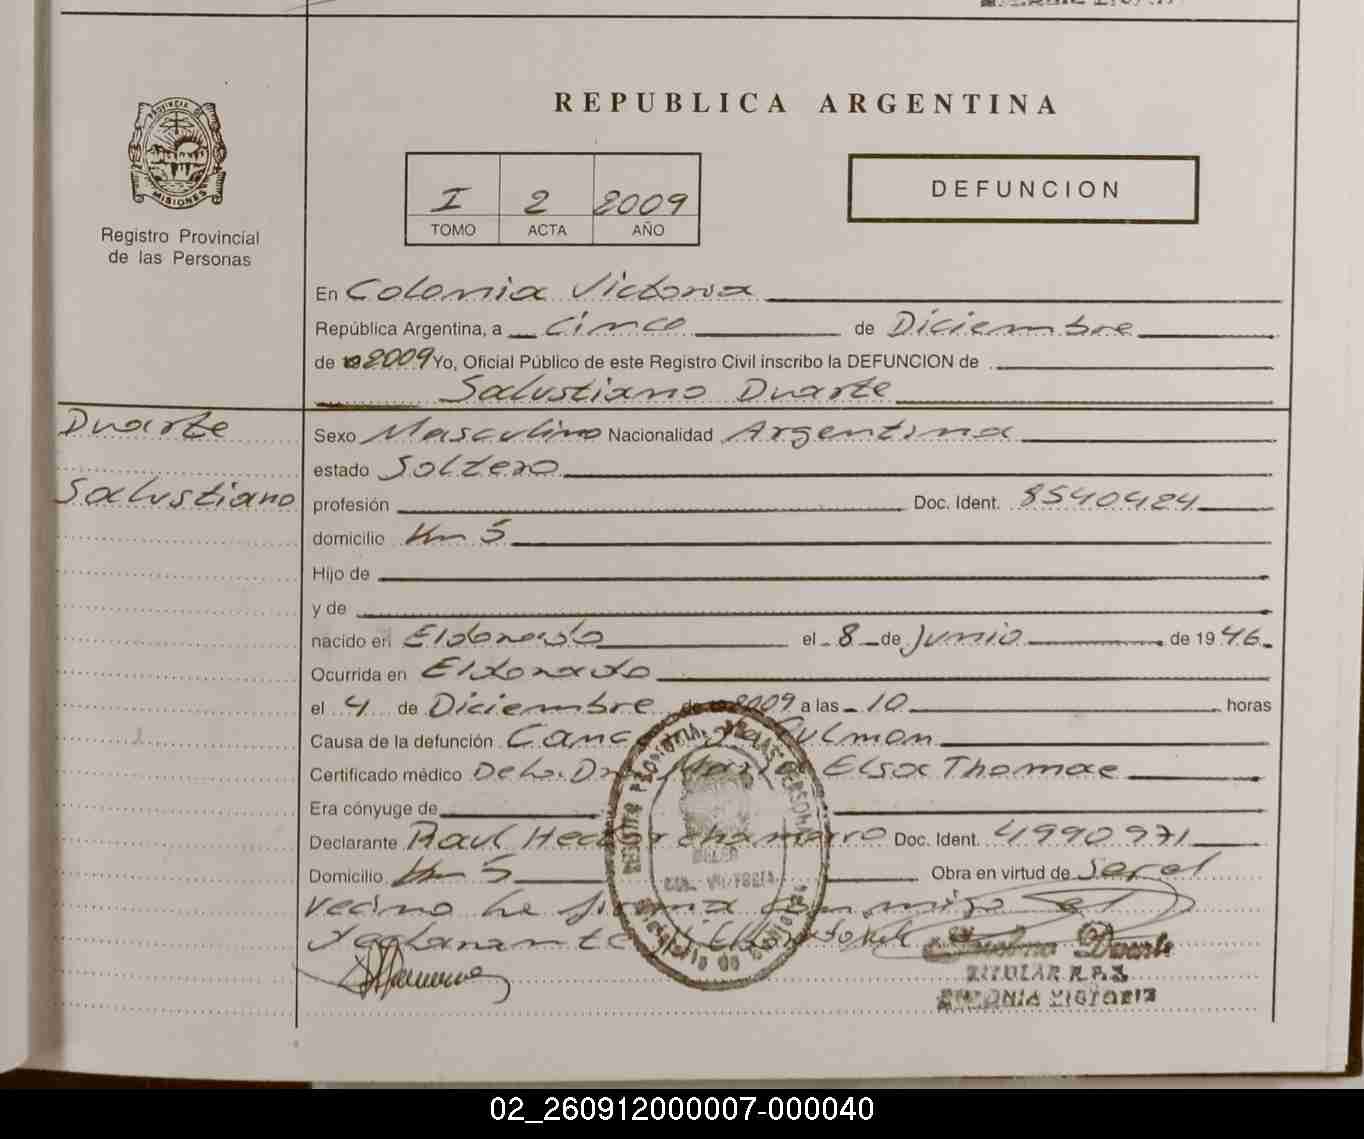 REPUBLICA ARGENTINA
PROVINCIA DE
MISIONES
Registro Provincial
de las Personas
I 2 2009
TOMO ACTA AÑO
DEFUNCION
En Colonia Victoria
República Argentina, a Cinco de Diciembre
de 2009 Yo, Oficial Público de este Registro Civil inscribo la DEFUNCION de
Salustiano Duarte
Duarte
Salustiano
Sexo Masculino Nacionalidad Argentina
estado Soltero
profesión Doc. Ident. 8540424
domicilio Km 5
Hijo de
y de
nacido en Eldorado el 8 de Junio de 1946
Ocurrida en Eldorado
el 4 de Diciembre de 2009 a las 10 horas
Causa de la defunción Pulmon
Certificado médico Elsa Thomae
Era cónyuge de
Declarante Raul Hector Chamorro Doc. Ident. 4990971
Domicilio Km 5 Obra en virtud de Ser el
vecino firma conmigo el
Duarte
TITULAR R.P.
COLONIA VICTORIA
02_260912000007-000040